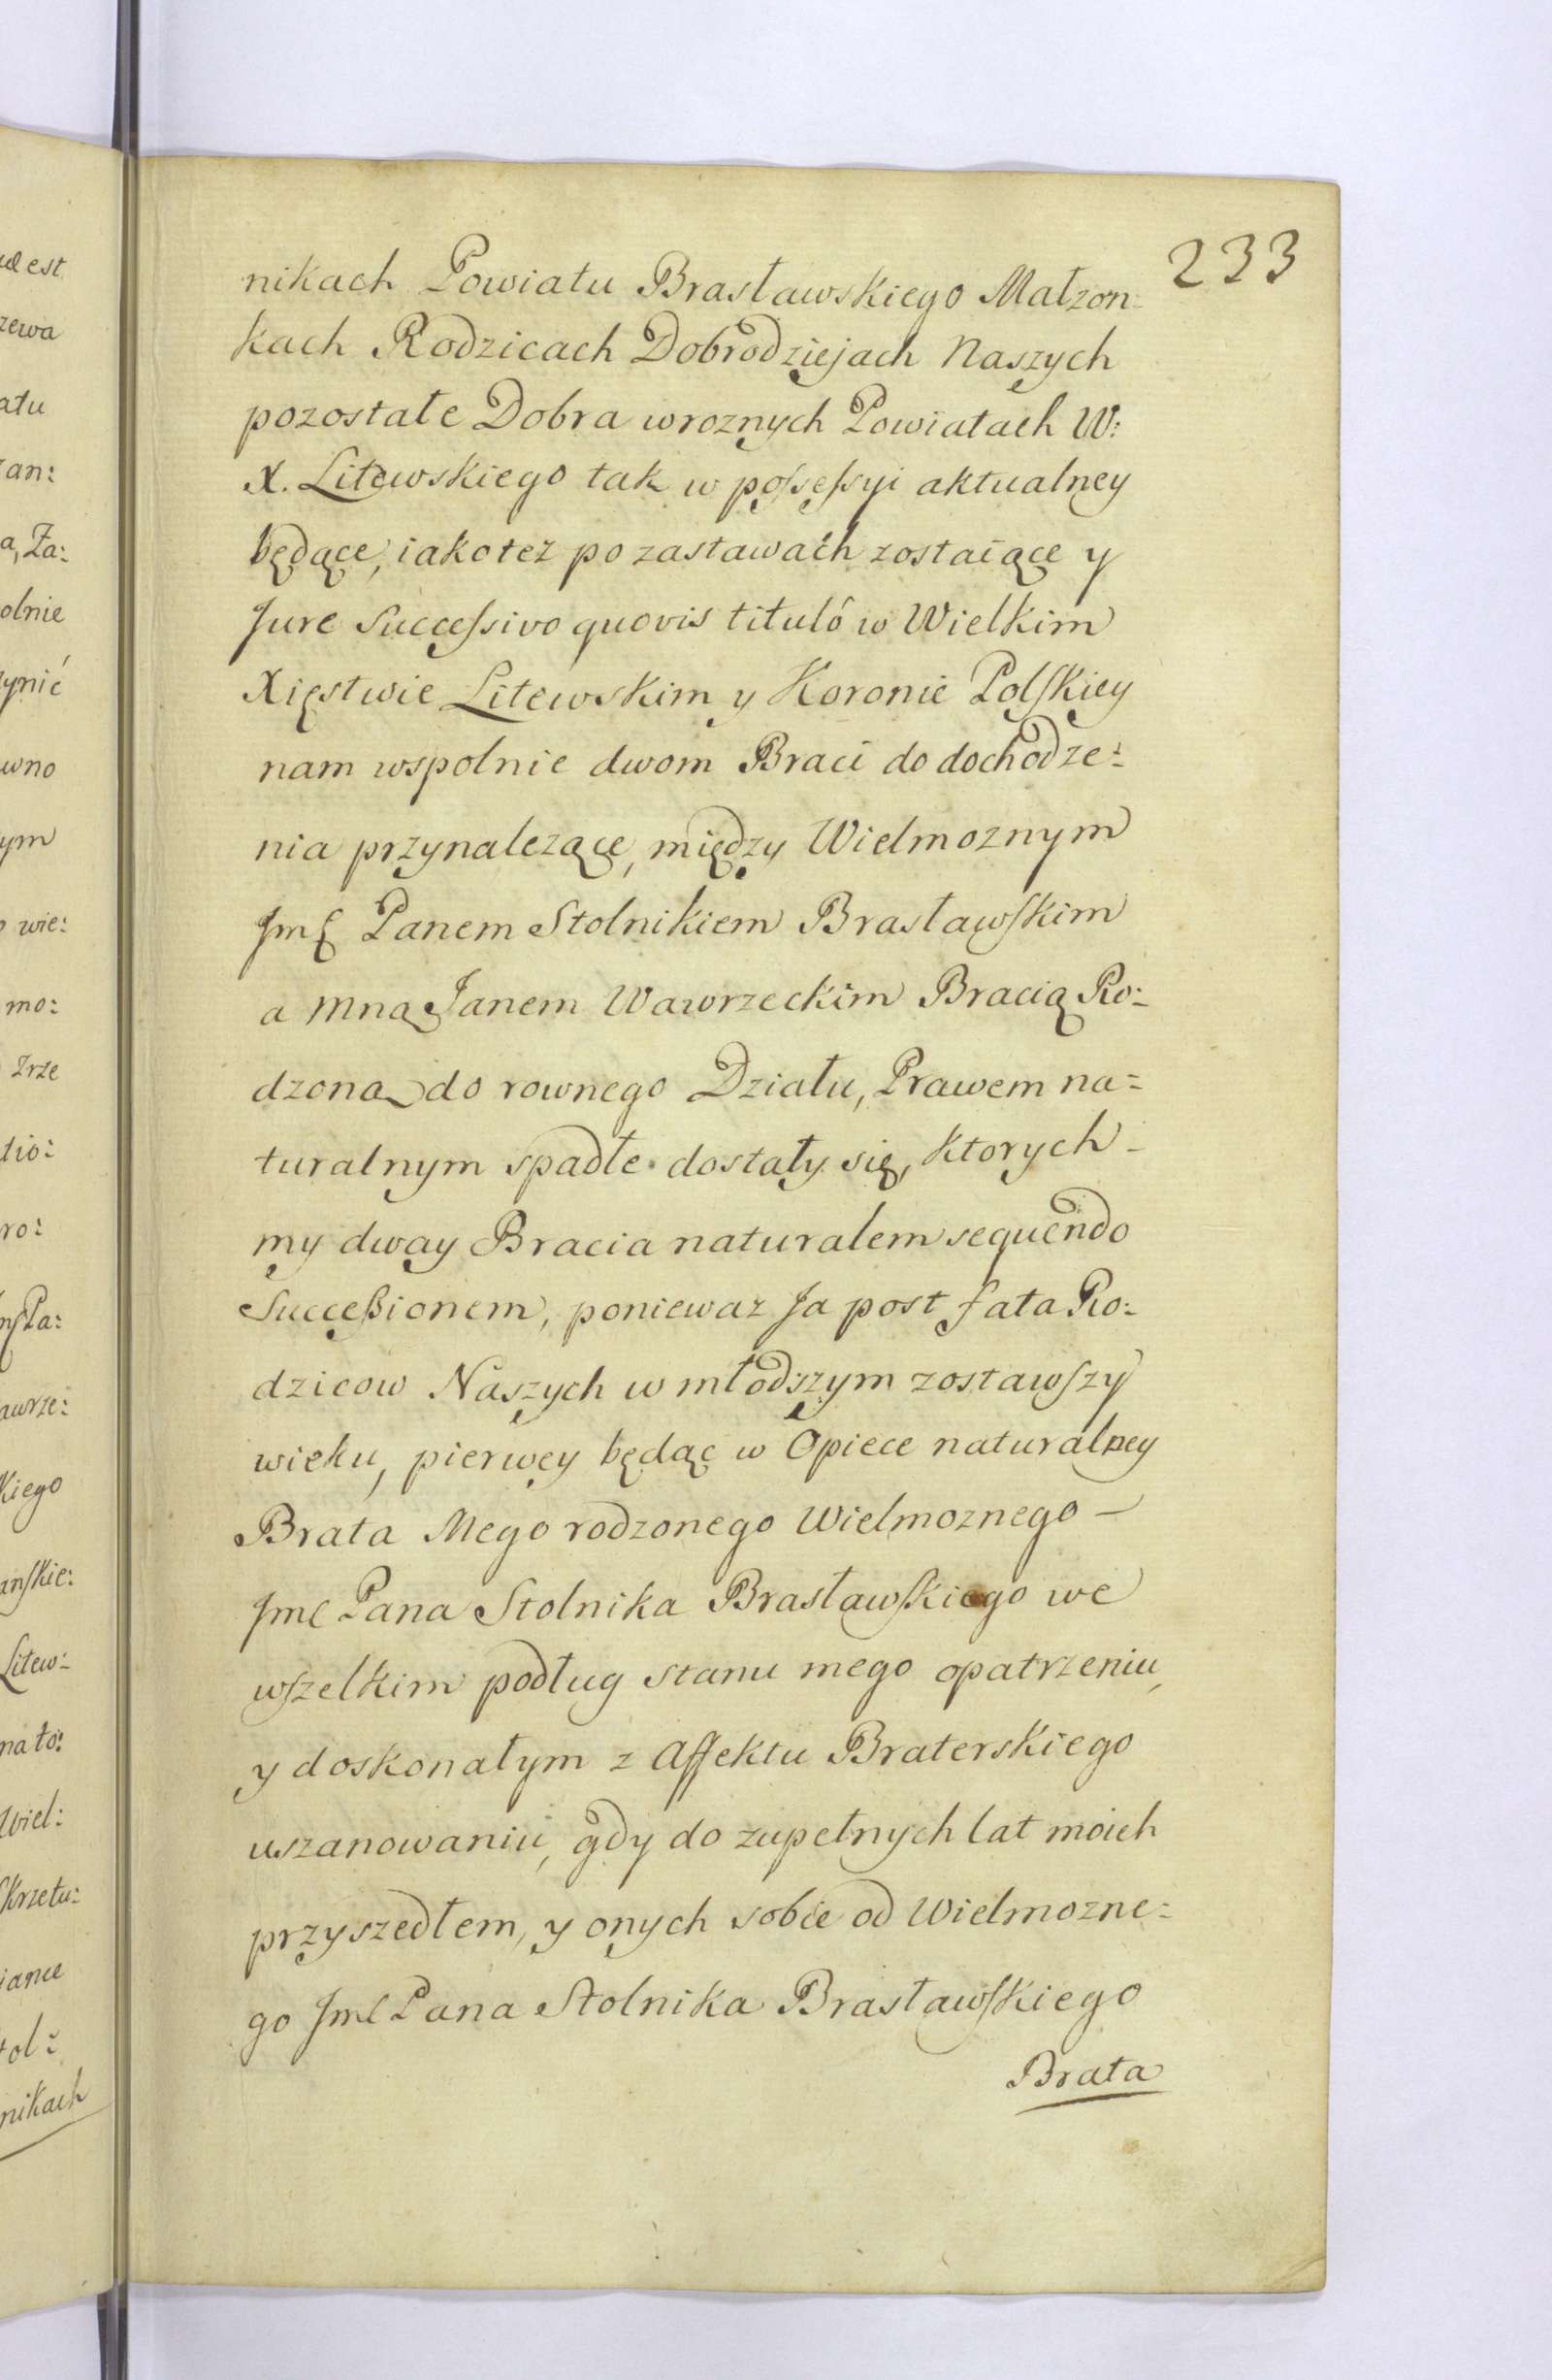 233
nikach Powiatu Brasławskiego Małzon-
kach Rodzicach Dobrodziejach Naszych
pozostałe Dobra w roznych Powiatach W:
X. Litewskiego tak w poſseſsyi aktualney
będące, iako tez po zastawach zostaiące y
Jure Succeſsivo quovis titulô w Wielkim
Xięstwie Litewskim y Koronie Polſkiey
nam wspolnie dwom Braci do dochodze:
nia przynalezące, między Wielmoznym
Jmſ Panem Stolnikiem Brasławſkim
a mną Janem Wawrzeckim Bracią Ro:
dzoną do rownego Działu, Prawem na=
turalnym spadłe dostały się, ktorych -
my dway Bracia naturalem sequendo
Succeßionem, poniewaz Ja post fata Ro:
dzicow Naszych w młodszym zostawſzy
wieku, pierwey będąc w Opiece naturalney
Brata Mego rodzonego Wielmoznego -
Jmſ Pana Stolnika Brasławſkiego we
wſzelkim podług stanu mego opatrzeniu,
y doskonałym z Affektu Braterskiego
uszanowaniu, gdy do zupełnych lat moich
przyszedłem, y onych sobie od Wielmozne:
go Jmſ Pana Stolnika Brasławſkiego
Brata
est
zewa
atu
an:
a, Za:
olnie
ynić
wno
ym
wie:
mo:
Zrze
ro:
Pa:
awrze:
kiego
anſkie:
Litew:
nato:
Wiel:
ſkrzetu:
iance
tol:
nikach